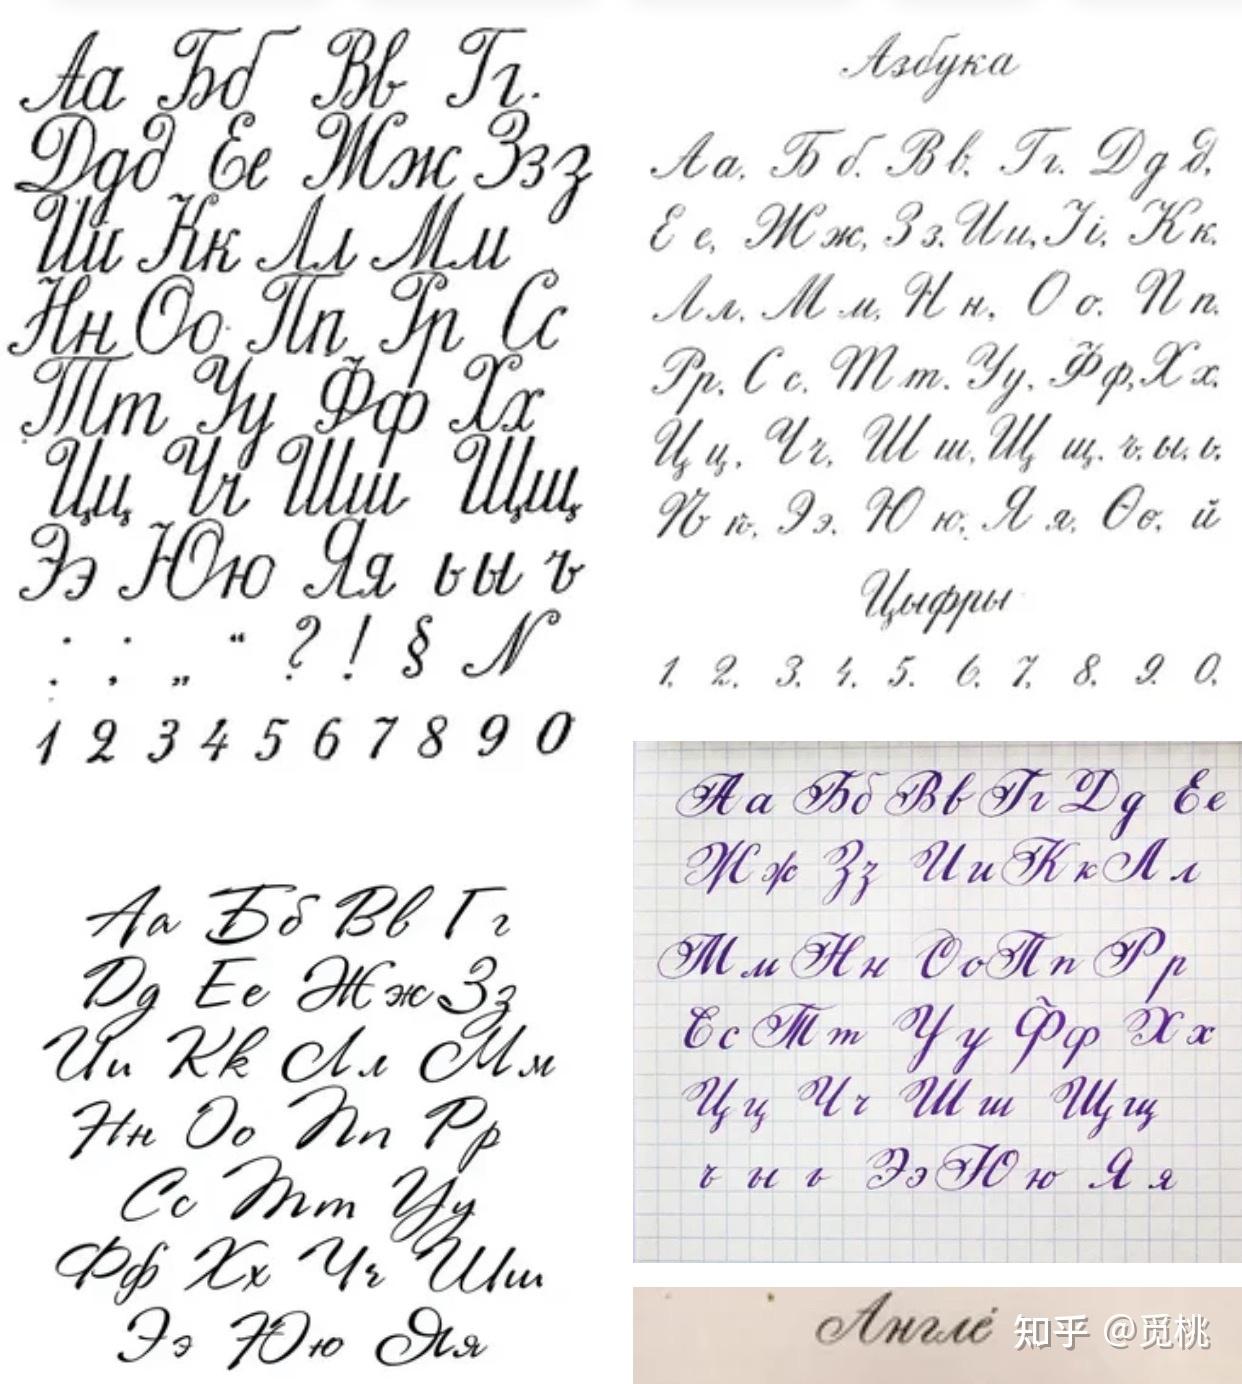 Аа Бб Вв Гг.
Ддд Ее Жж Ззз
Ии Кк Лл Мм
Нн Оо Пп Рр Сс
Тт Уу Фф Хх
Цц Чч Шш Щщ
Ээ Юю Яя ь ы ъ
: ; „ “ ? ! § N
1 2 3 4 5 6 7 8 9 0
Азбука
Аа. Бб. Вв. Гг. Ддд.
Ее, Жж, Зз. Ии, Іі. Кк.
Лл. Мм, Нн. Оо. Пп.
Рр. Сс. Тт. Уу. Фф, Хх.
Цц. Чч, Шш, Щщ. ъ. ы. ь.
Ѣѣ. Ээ. Юю. Яя. Ѳѳ. й
Цыфры
1. 2. 3. 4. 5. 6. 7. 8. 9. 0.
Аа Бб Вв Гг
Дд Ее Жж Зз
Ии Кк Лл Мм
Нн Оо Пп Рр
Сс Тт Уу
Фф Хх Чч Шш
Ээ Юю Яя
Аа Бб Вв Гг Дд Ее
Жж Зз Ии Кк Лл
Мм Нн Оо Пп Рр
Сс Тт Уу Фф Хх
Цц Чч Шш Щщ
ъ ы ь Ээ Юю Яя
Англе
知乎 @觅桃